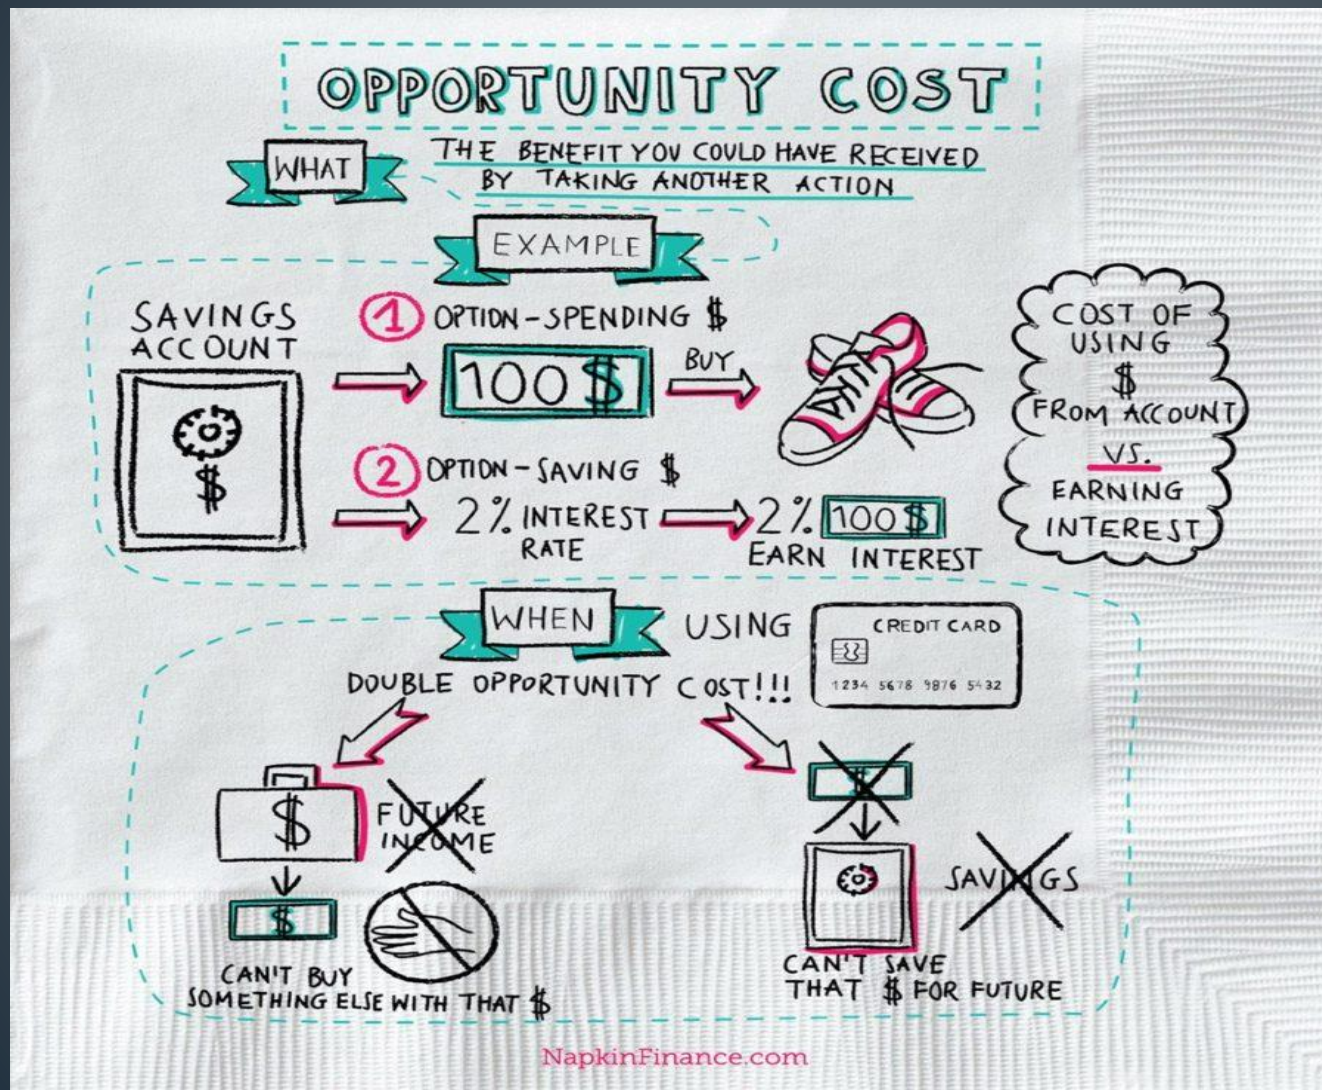 OPPORTUNITY COST
WHAT
THE BENEFIT YOU COULD HAVE RECEIVED
BY TAKING ANOTHER ACTION
EXAMPLE
SAVINGS
ACCOUNT
1 OPTION - SPENDING $
100 $
BUY
$
2 OPTION - SAVING $
2% INTEREST
RATE
2% 100 $
EARN INTEREST
COST OF
USING
$
FROM ACCOUNT
VS.
EARNING
INTEREST
WHEN
USING
CREDIT CARD
1234 5678 9876 5432
DOUBLE OPPORTUNITY COST!!!
$
FUTURE
INCOME
$
CAN'T BUY
SOMETHING ELSE WITH THAT $
$
SAVINGS
CAN'T SAVE
THAT $ FOR FUTURE
NapkinFinance.com